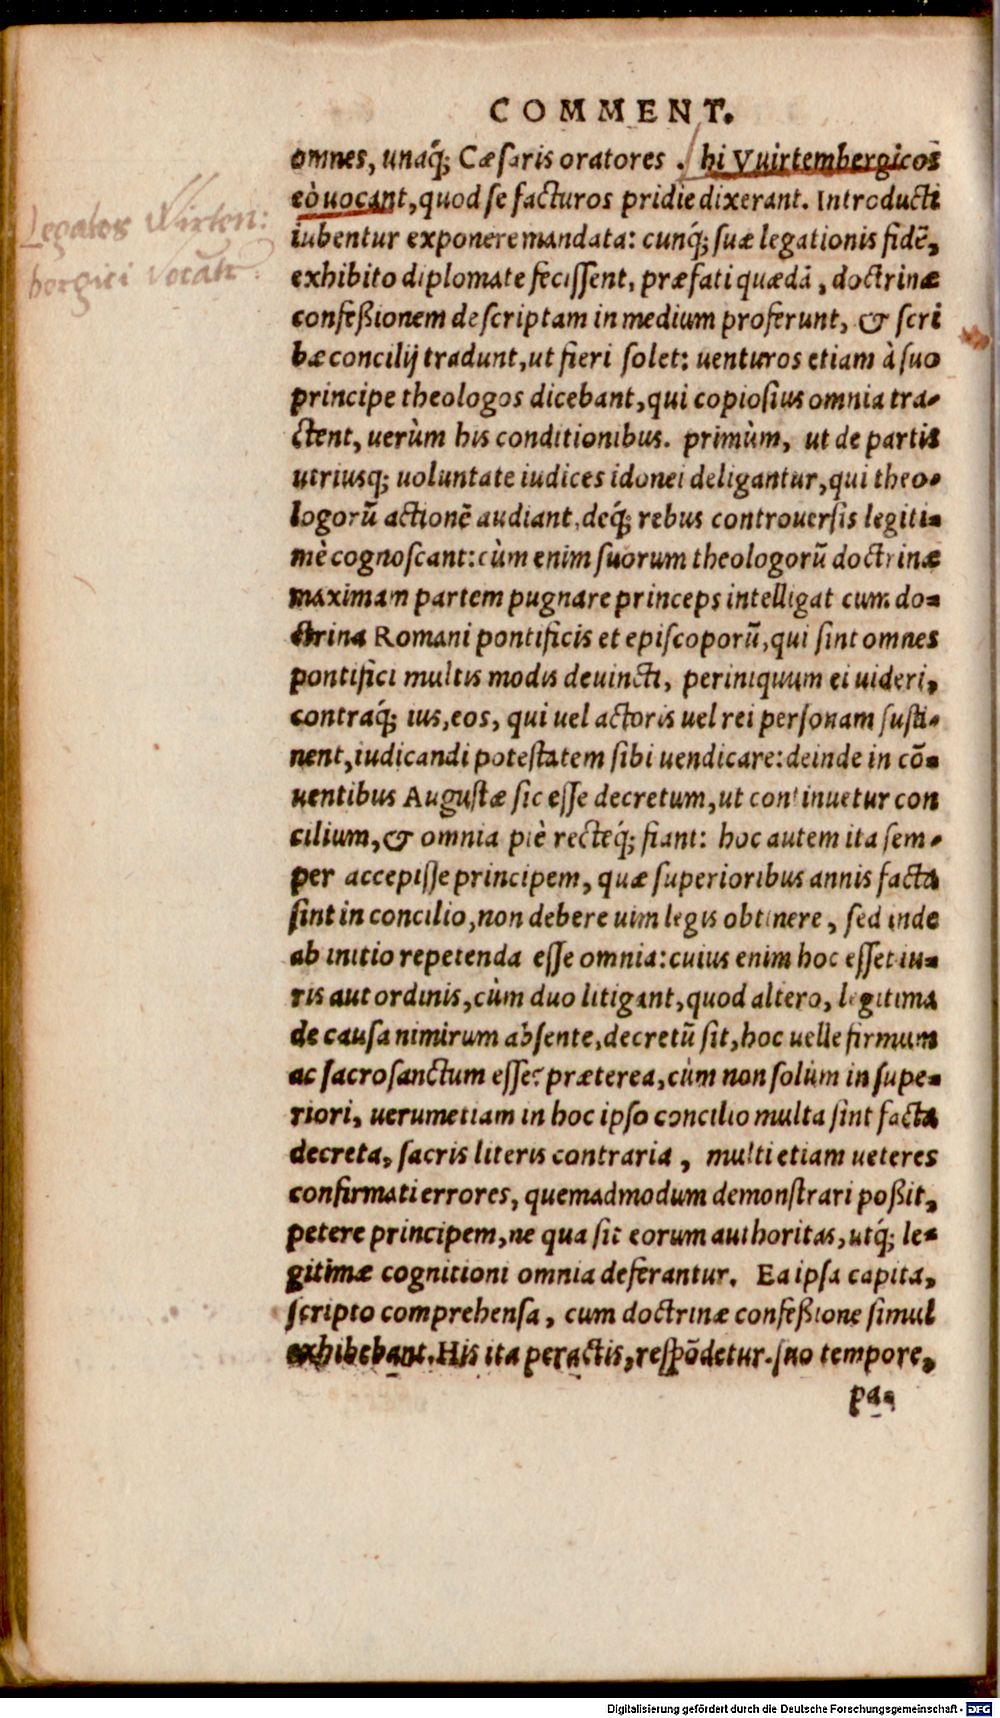 COMMENT.
omnes, unaq́; Cæsaris oratores . hi Vuirtembergicos
eò uocant, quod se facturos pridie dixerant. Introducti
iubentur exponere mandata: cunq́; suæ legationis fidẽ,
exhibito diplomate fecissent, præfati quædã, doctrinæ
confeßionem descriptam in medium proferunt, & scri
bæ concilij tradunt, ut fieri solet: uenturos etiam à suo
principe theologos dicebant, qui copiosius omnia tra-
ctent, uerùm his conditionibus. primùm, ut de partis
utriusq; uoluntate iudices idonei deligantur, qui theo-
logorũ actionẽ audiant, deq́; rebus controuersis legiti-
mè cognoscant: cùm enim suorum theologorũ doctrinæ
maximam partem pugnare princeps intelligat cum do-
ctrina Romani pontificis et episcoporũ, qui sint omnes
pontifici multis modis deuincti, periniquum ei uideri,
contraq́; ius, eos, qui uel actoris uel rei personam susti-
nent, iudicandi potestatem sibi uendicare: deinde in cõ-
uentibus Augustæ sic esse decretum, ut continuetur con
cilium, & omnia piè recteq́; fiant: hoc autem ita sem-
per accepisse principem, quæ superioribus annis facta
sint in concilio, non debere uim legis obtinere, sed inde
ab initio repetenda esse omnia: cuius enim hoc esset iu-
ris aut ordinis, cùm duo litigant, quod altero, legitima
de causa nimirum absente, decretũ sit, hoc uelle firmum
ac sacrosanctum esse? præterea, cùm non solùm in supe-
riori, uerumetiam in hoc ipso concilio multa sint facta
decreta, sacris literis contraria , multi etiam ueteres
confirmati errores, quemadmodum demonstrari poßit,
petere principem, ne qua sit eorum authoritas, utq́; le-
gitimæ cognitioni omnia deferantur. Ea ipsa capita,
scripto comprehensa, cum doctrinæ confeßione simul
exhibebant. His ita peractis, respõdetur. suo tempore,
pa-
Legatos Wirten:
bergici vocatr.
Digitalisierung gefördert durch die Deutsche Forschungsgemeinschaft - DFG